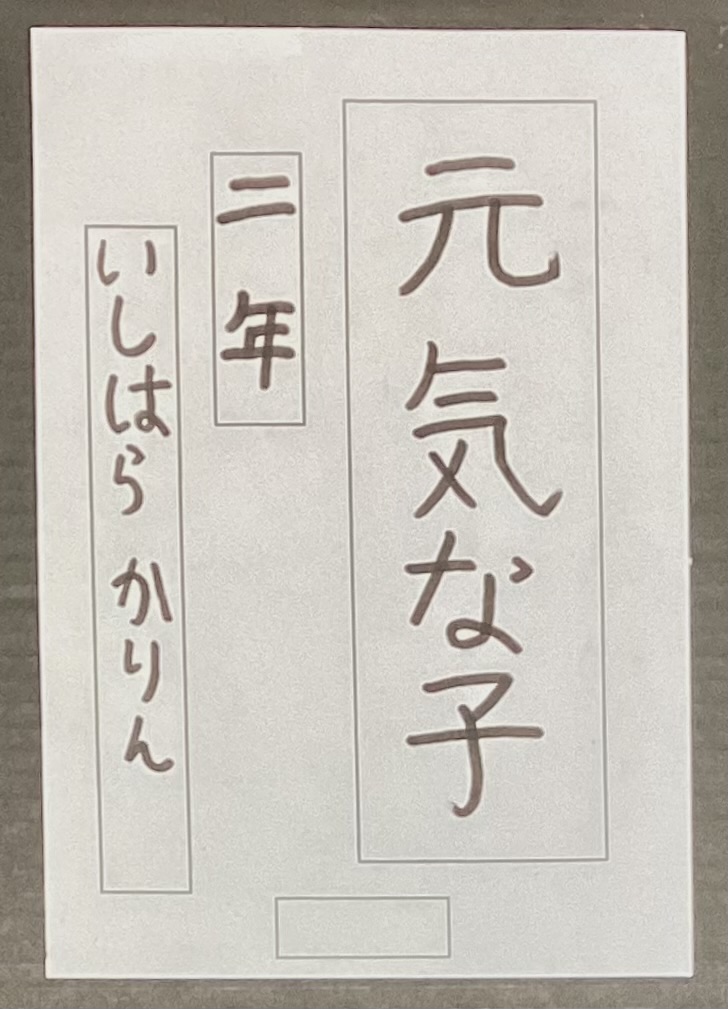 元気な子
二年
いしはら かりん